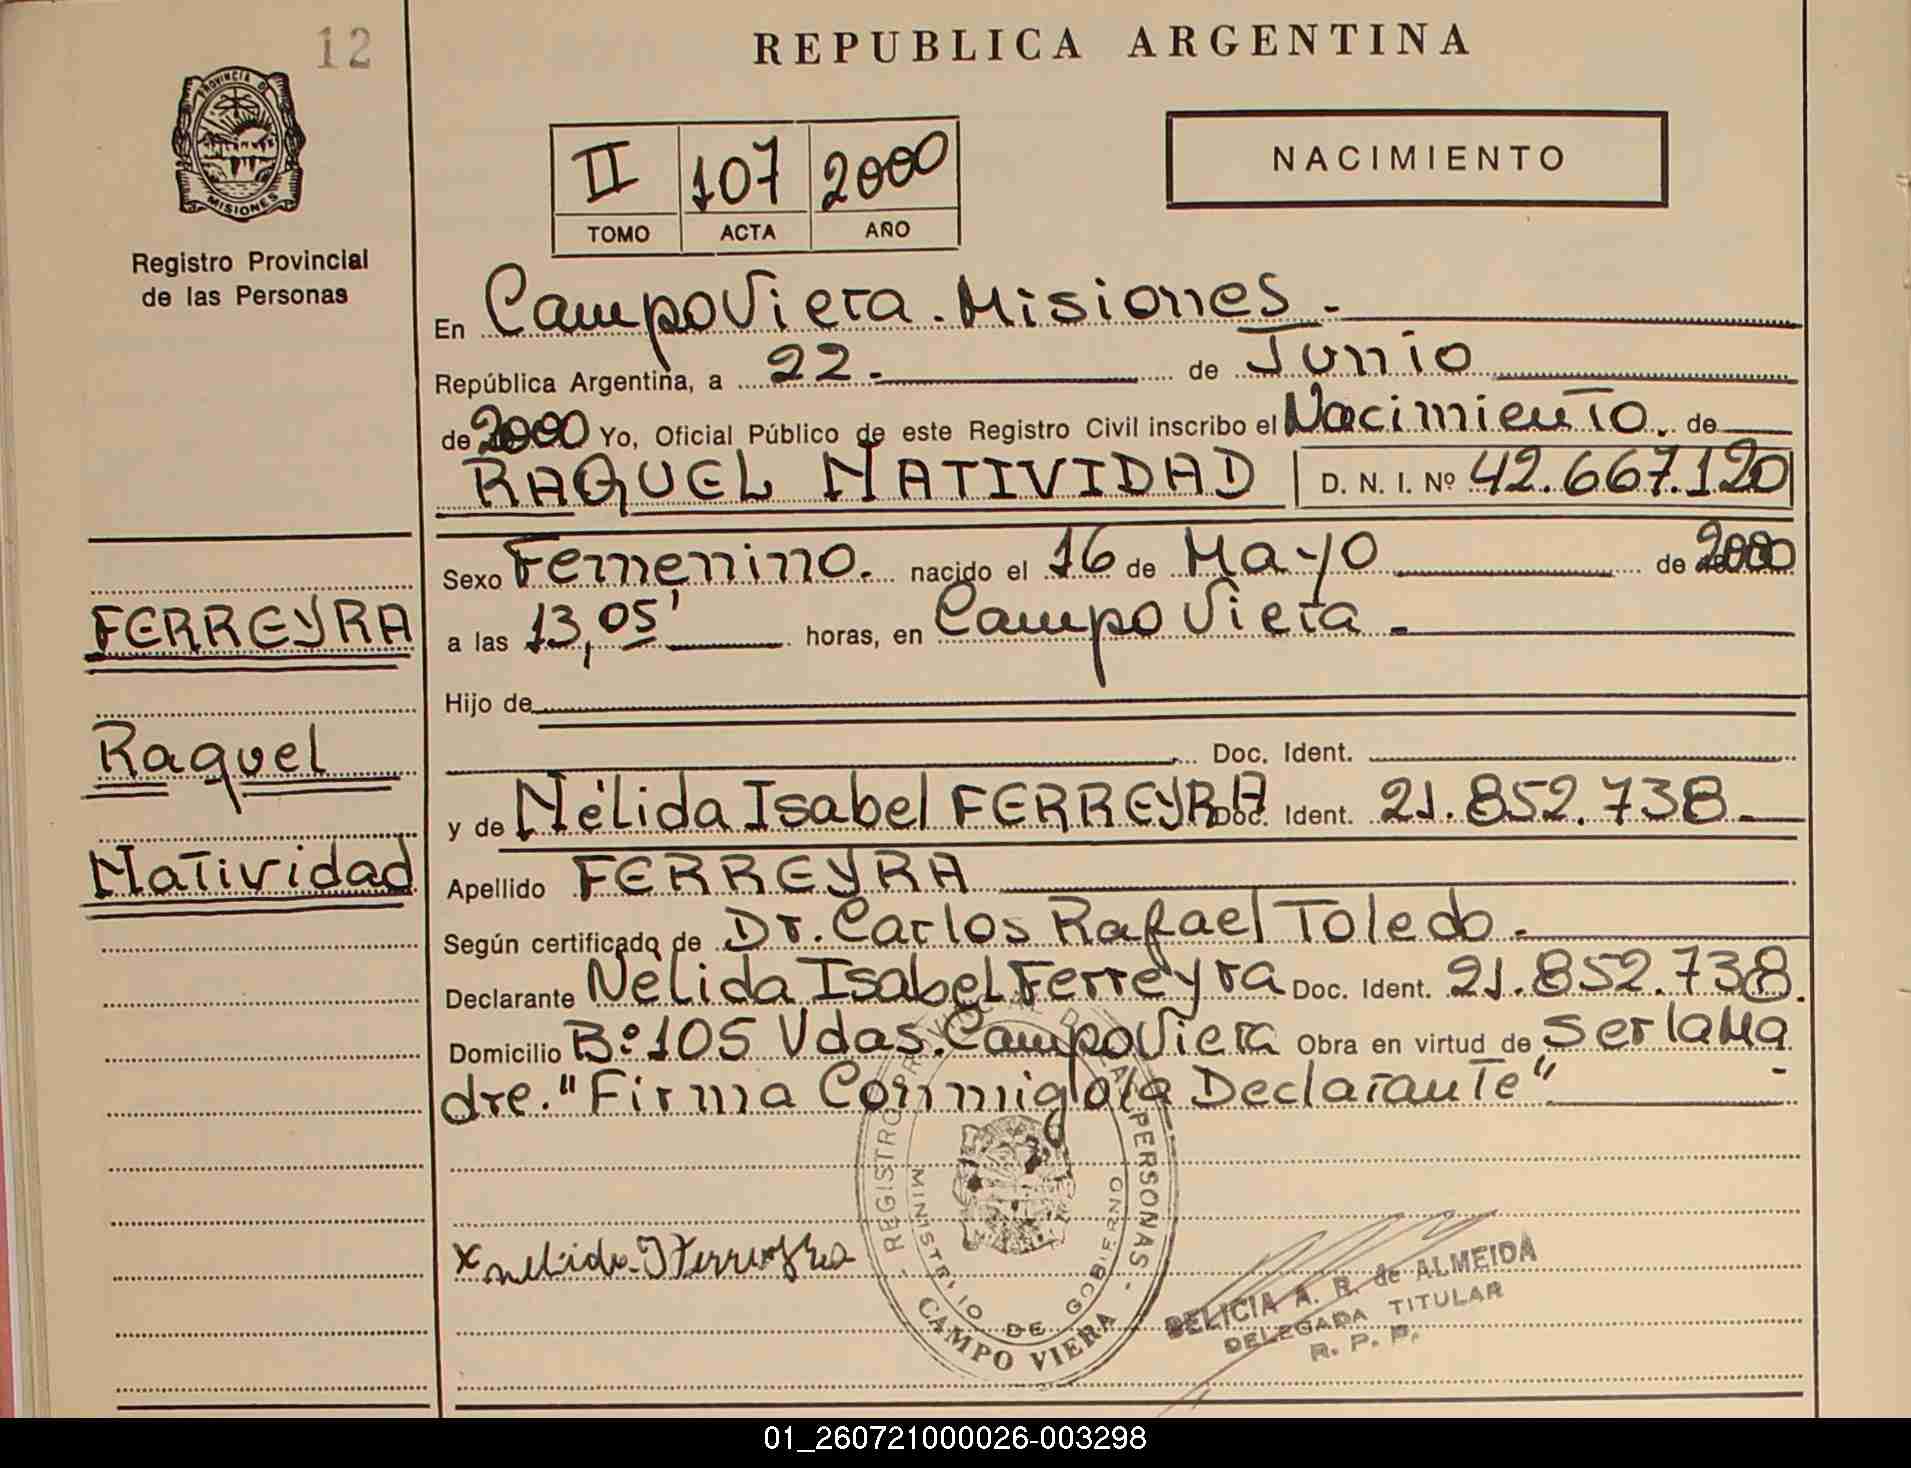 12
REPUBLICA ARGENTINA
PROVINCIA DE
MISIONES
Registro Provincial
de las Personas
II 107 2000
TOMO ACTA AÑO
NACIMIENTO
En Campo Viera. Misiones.-
República Argentina, a 22.- de Junio
de 2000 Yo, Oficial Público de este Registro Civil inscribo el Nacimiento. de
RAQUEL NATIVIDAD D. N. I. Nº 42.667.120
Sexo Femenino. nacido el 16 de Mayo de 2000
a las 13,05' horas, en Campo Viera.-
Hijo de
Doc. Ident.
y de Nélida Isabel FERREYRA Doc. Ident. 21.852.738.-
Apellido FERREYRA
Según certificado de Dr. Carlos Rafael Toledo.-
Declarante Nélida Isabel Ferreyra Doc. Ident. 21.852.738.
Domicilio Bº 105 Vdas. Campo Viera Obra en virtud de ser la Ma
dre. "Firma Conmigo la Declarante" -
FERREYRA
Raquel
Natividad
x nelida I Ferreyra
REGISTRO PROVINCIAL DE LAS PERSONAS
MINISTERIO DE GOBIERNO
CAMPO VIERA
DELICIA A. R. de ALMEIDA
DELEGADA TITULAR
R. P. P.
01_260721000026-003298